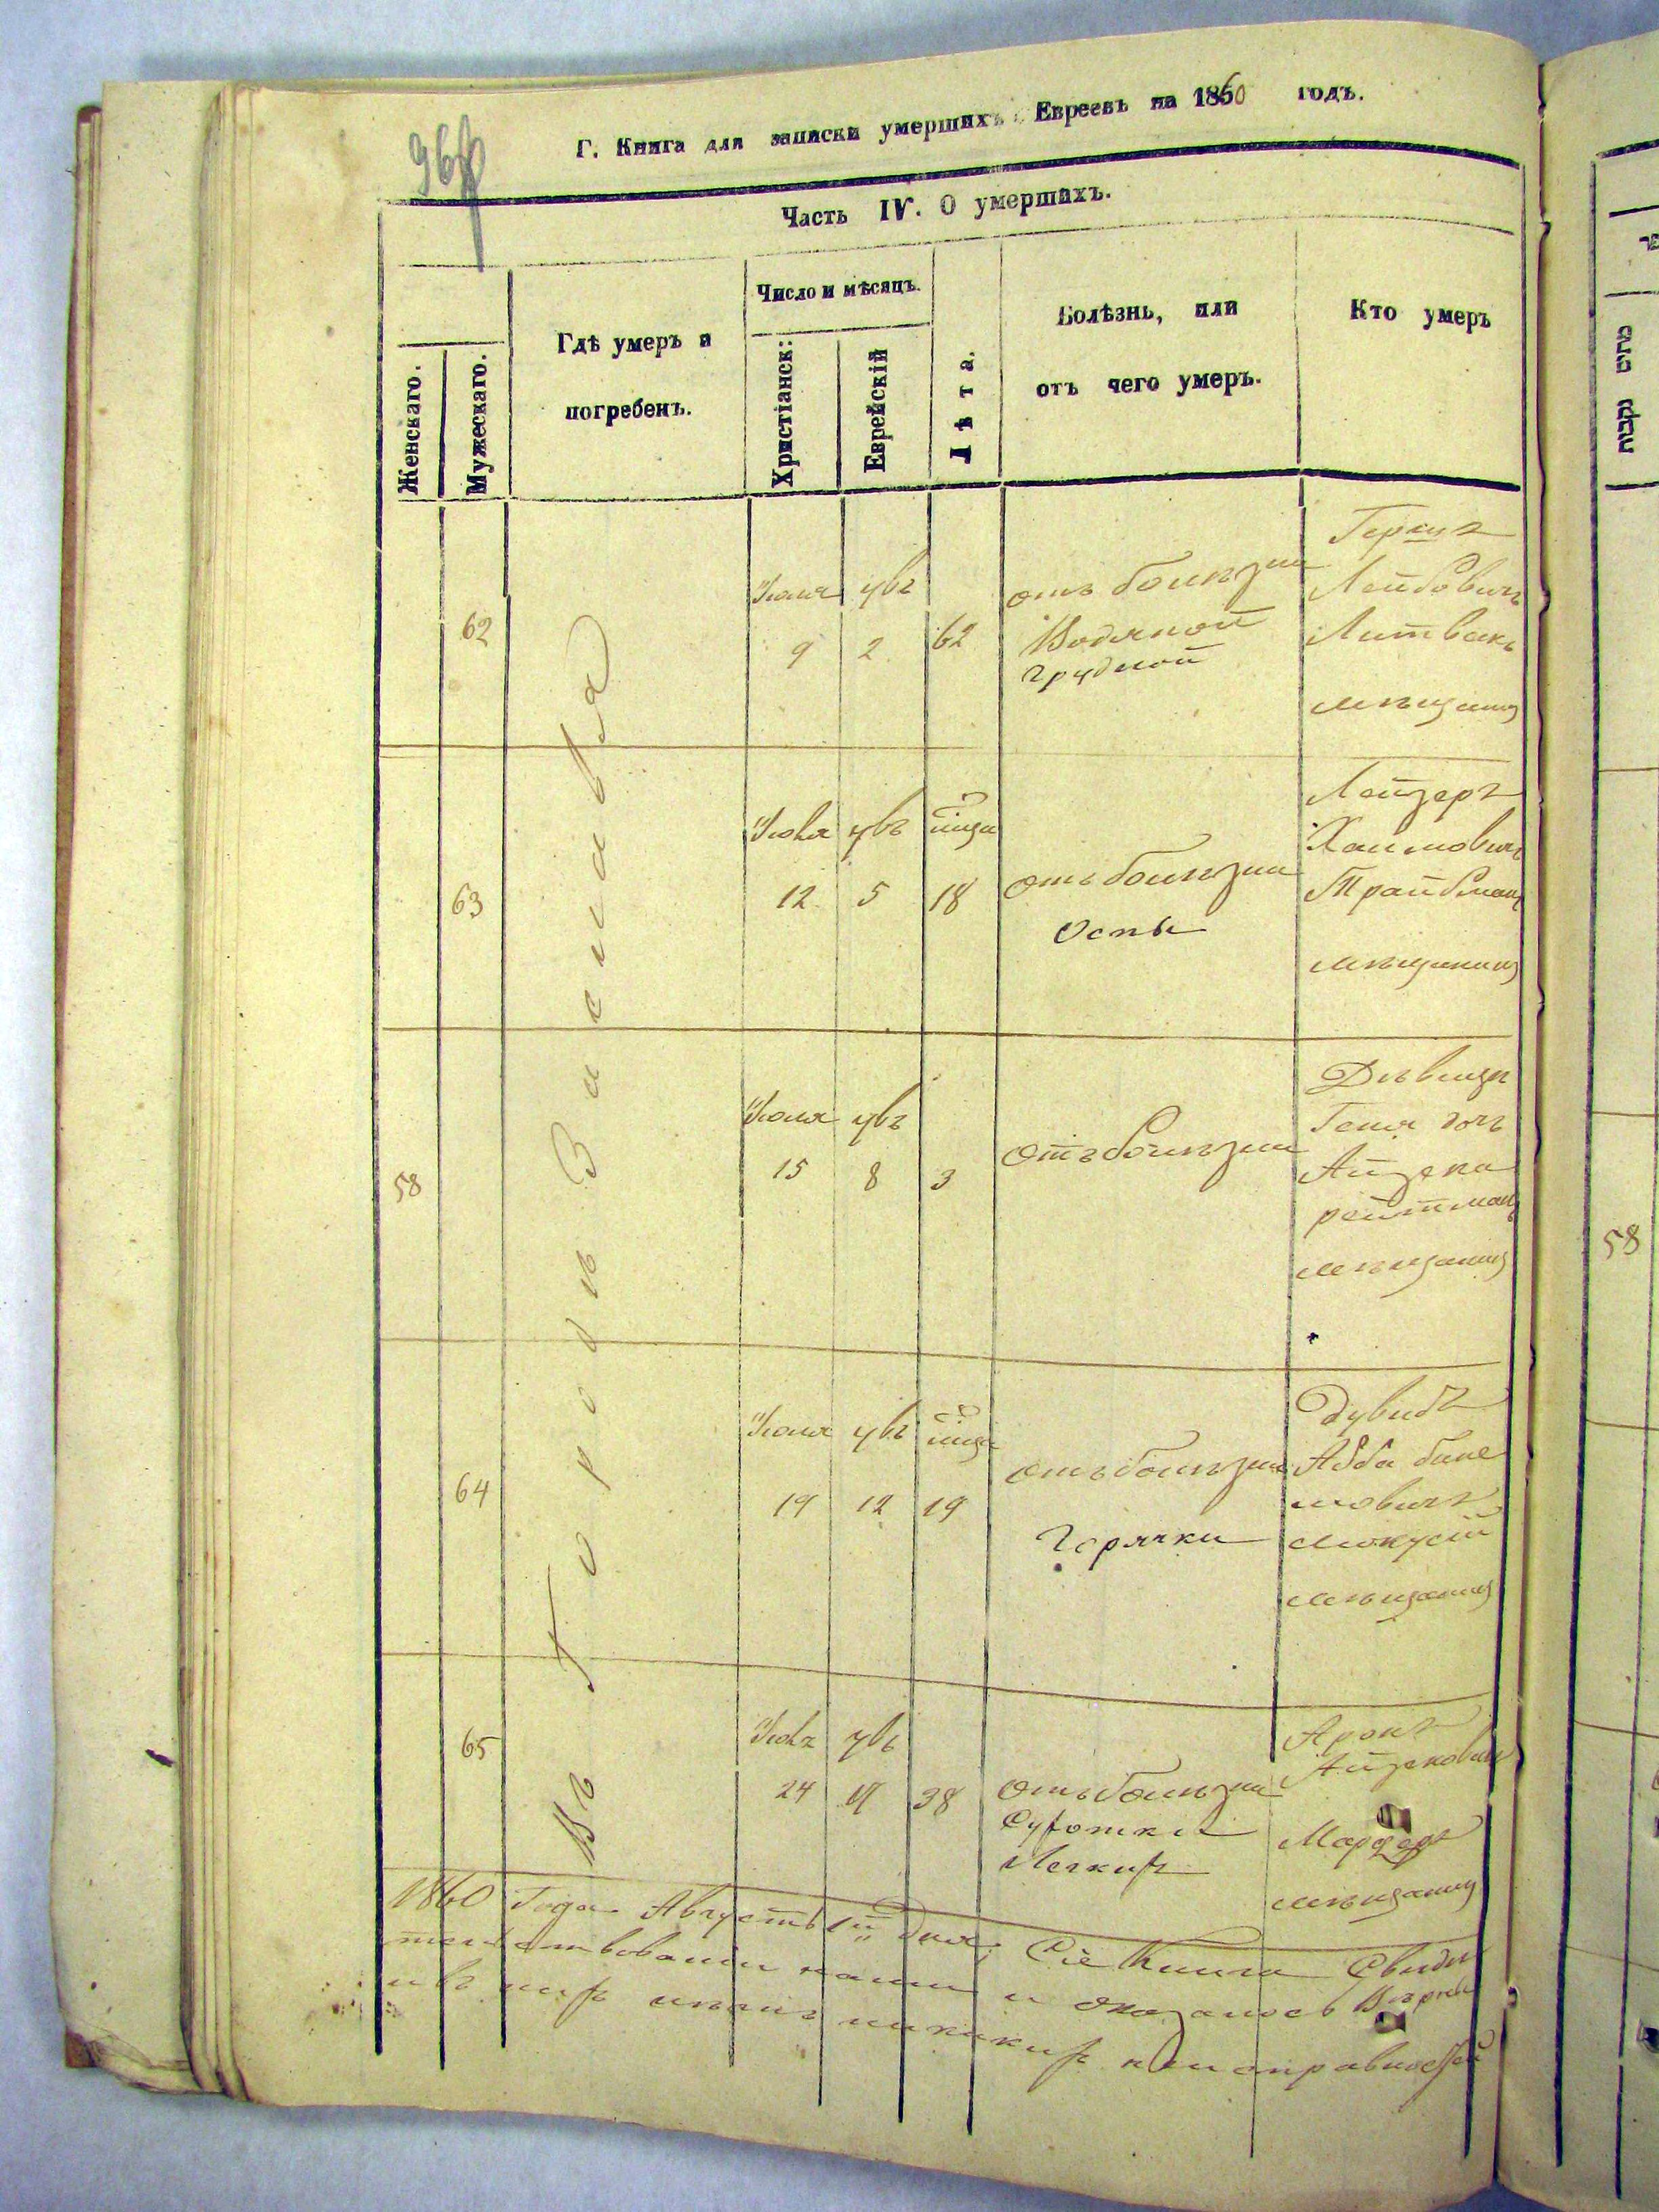 Г. Книга для записки умершихъ Евреевъ на 1860 годъ.
Часть IV. О умершихъ.
Женскаго.
Мужескаго.
Гдѣ умеръ и
погребенъ.
Число и мѣсяцъ.
Христіанск:
Еврейскій
Лѣта.
Болѣзнь, или
отъ чего умеръ.
Кто умеръ
Въ Городѣ
62
Іюля
9
2
62
отъ болѣзни
Водяной
грудной
Лейбовичъ
Литвакъ
мѣщанинъ
63
Іюля
12
5
18
отъ болѣзни
Оспы
Лейзеръ
Хаимовичъ
Трайбманъ
мѣщанинъ
58
Іюля
15
8
3
отъ болѣзни
Дѣвица
Геня дочь
Айзека
ройтманъ
мѣщанинъ
64
Іюля
19
12
19
отъ болѣзни
Горячки
Дувидъ
Абба
мовичъ
мѣщанинъ
65
Іюля
24
17
38
отъ болѣзни
Сухотки
Легкихъ
Аронъ
Айзековичъ
мѣщанинъ
1860 Года Августъ 1й Дня Сіе Книга Свидѣ
тельствованы нами и оказалось Вѣрны
и въ нихъ нѣтъ никакихъ неисправностей
58